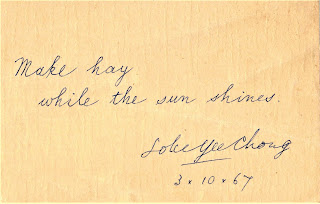 Make hay
while the sun shines.
Loke Yee Chong
3 × 10 × 67